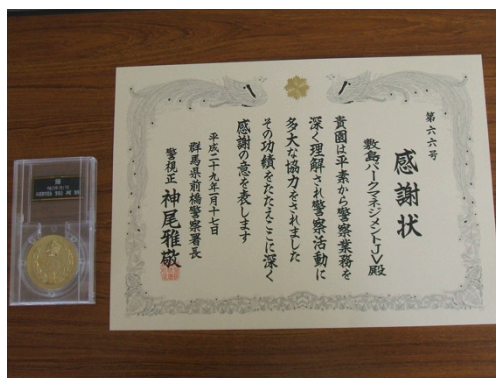 第六六号
感謝状
敷島パークマネジメントJV殿
貴園は平素から警察業務を
深く理解され警察活動に
多大な協力をされました
その功績をたたえここに深く
感謝の意を表します
平成二十九年一月十七日
群馬県前橋警察署長
警視正 神尾雅敬